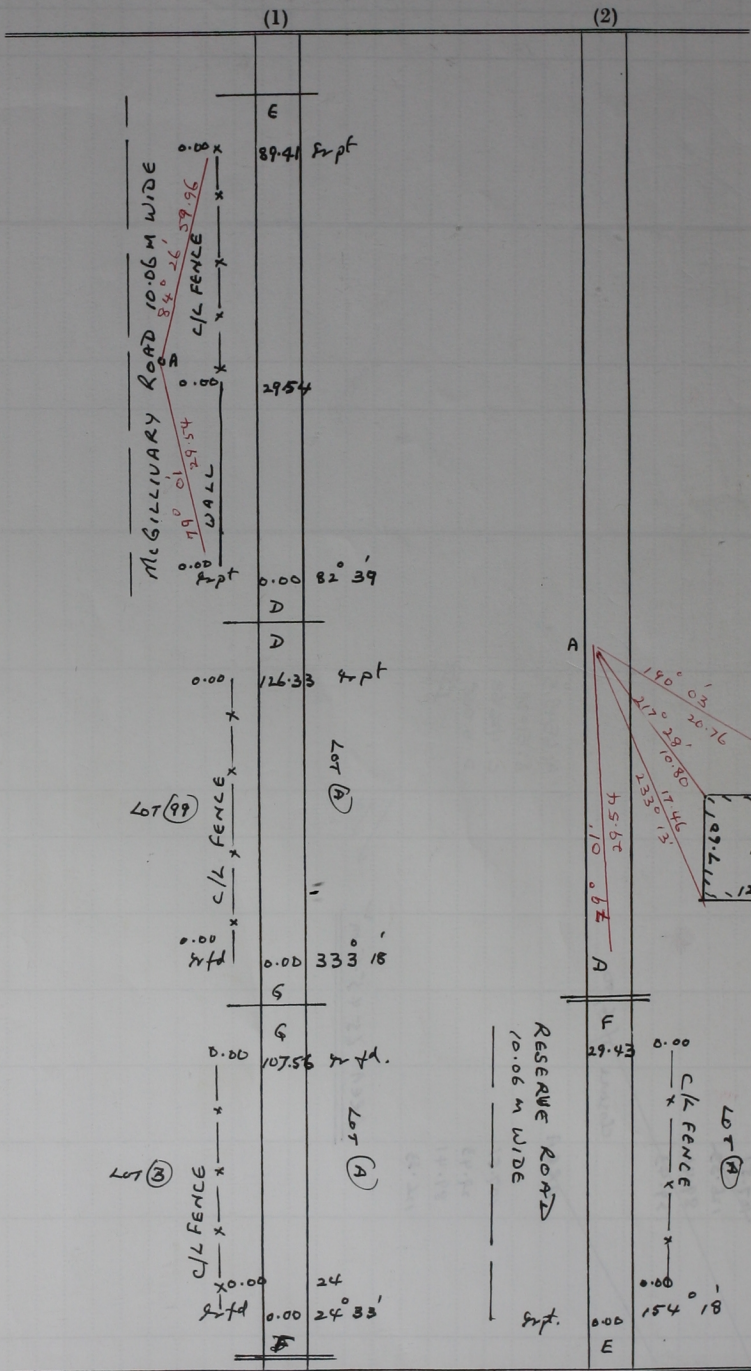 (1)
E
0.00 89.41 Irpt
McGILLIVARY ROAD 10.06 M WIDE
84° 26' 59.96
C/L FENCE
A
0.00 29.54
79° 01' 29.54
WALL
0.00
Irpt 0.00 82° 39'
D
D
0.00 126.33 Irpt
LOT (99)
C/L FENCE
LOT (A)
0.00
Irfd 0.00 333° 18'
G
G
0.00 107.56 Irfd.
LOT (3)
C/L FENCE
LOT (A)
0.00 24
Irfd 0.00 24° 33'
(2)
A
190° 03' 20.76
217° 28' 10.80
17.46
233° 13'
29.54
01'
A
F
29.43 0.00
RESERVE ROAD
10.06 M WIDE
C/L FENCE
LOT (A)
0.00
Irpt. 0.00 154° 18'
E